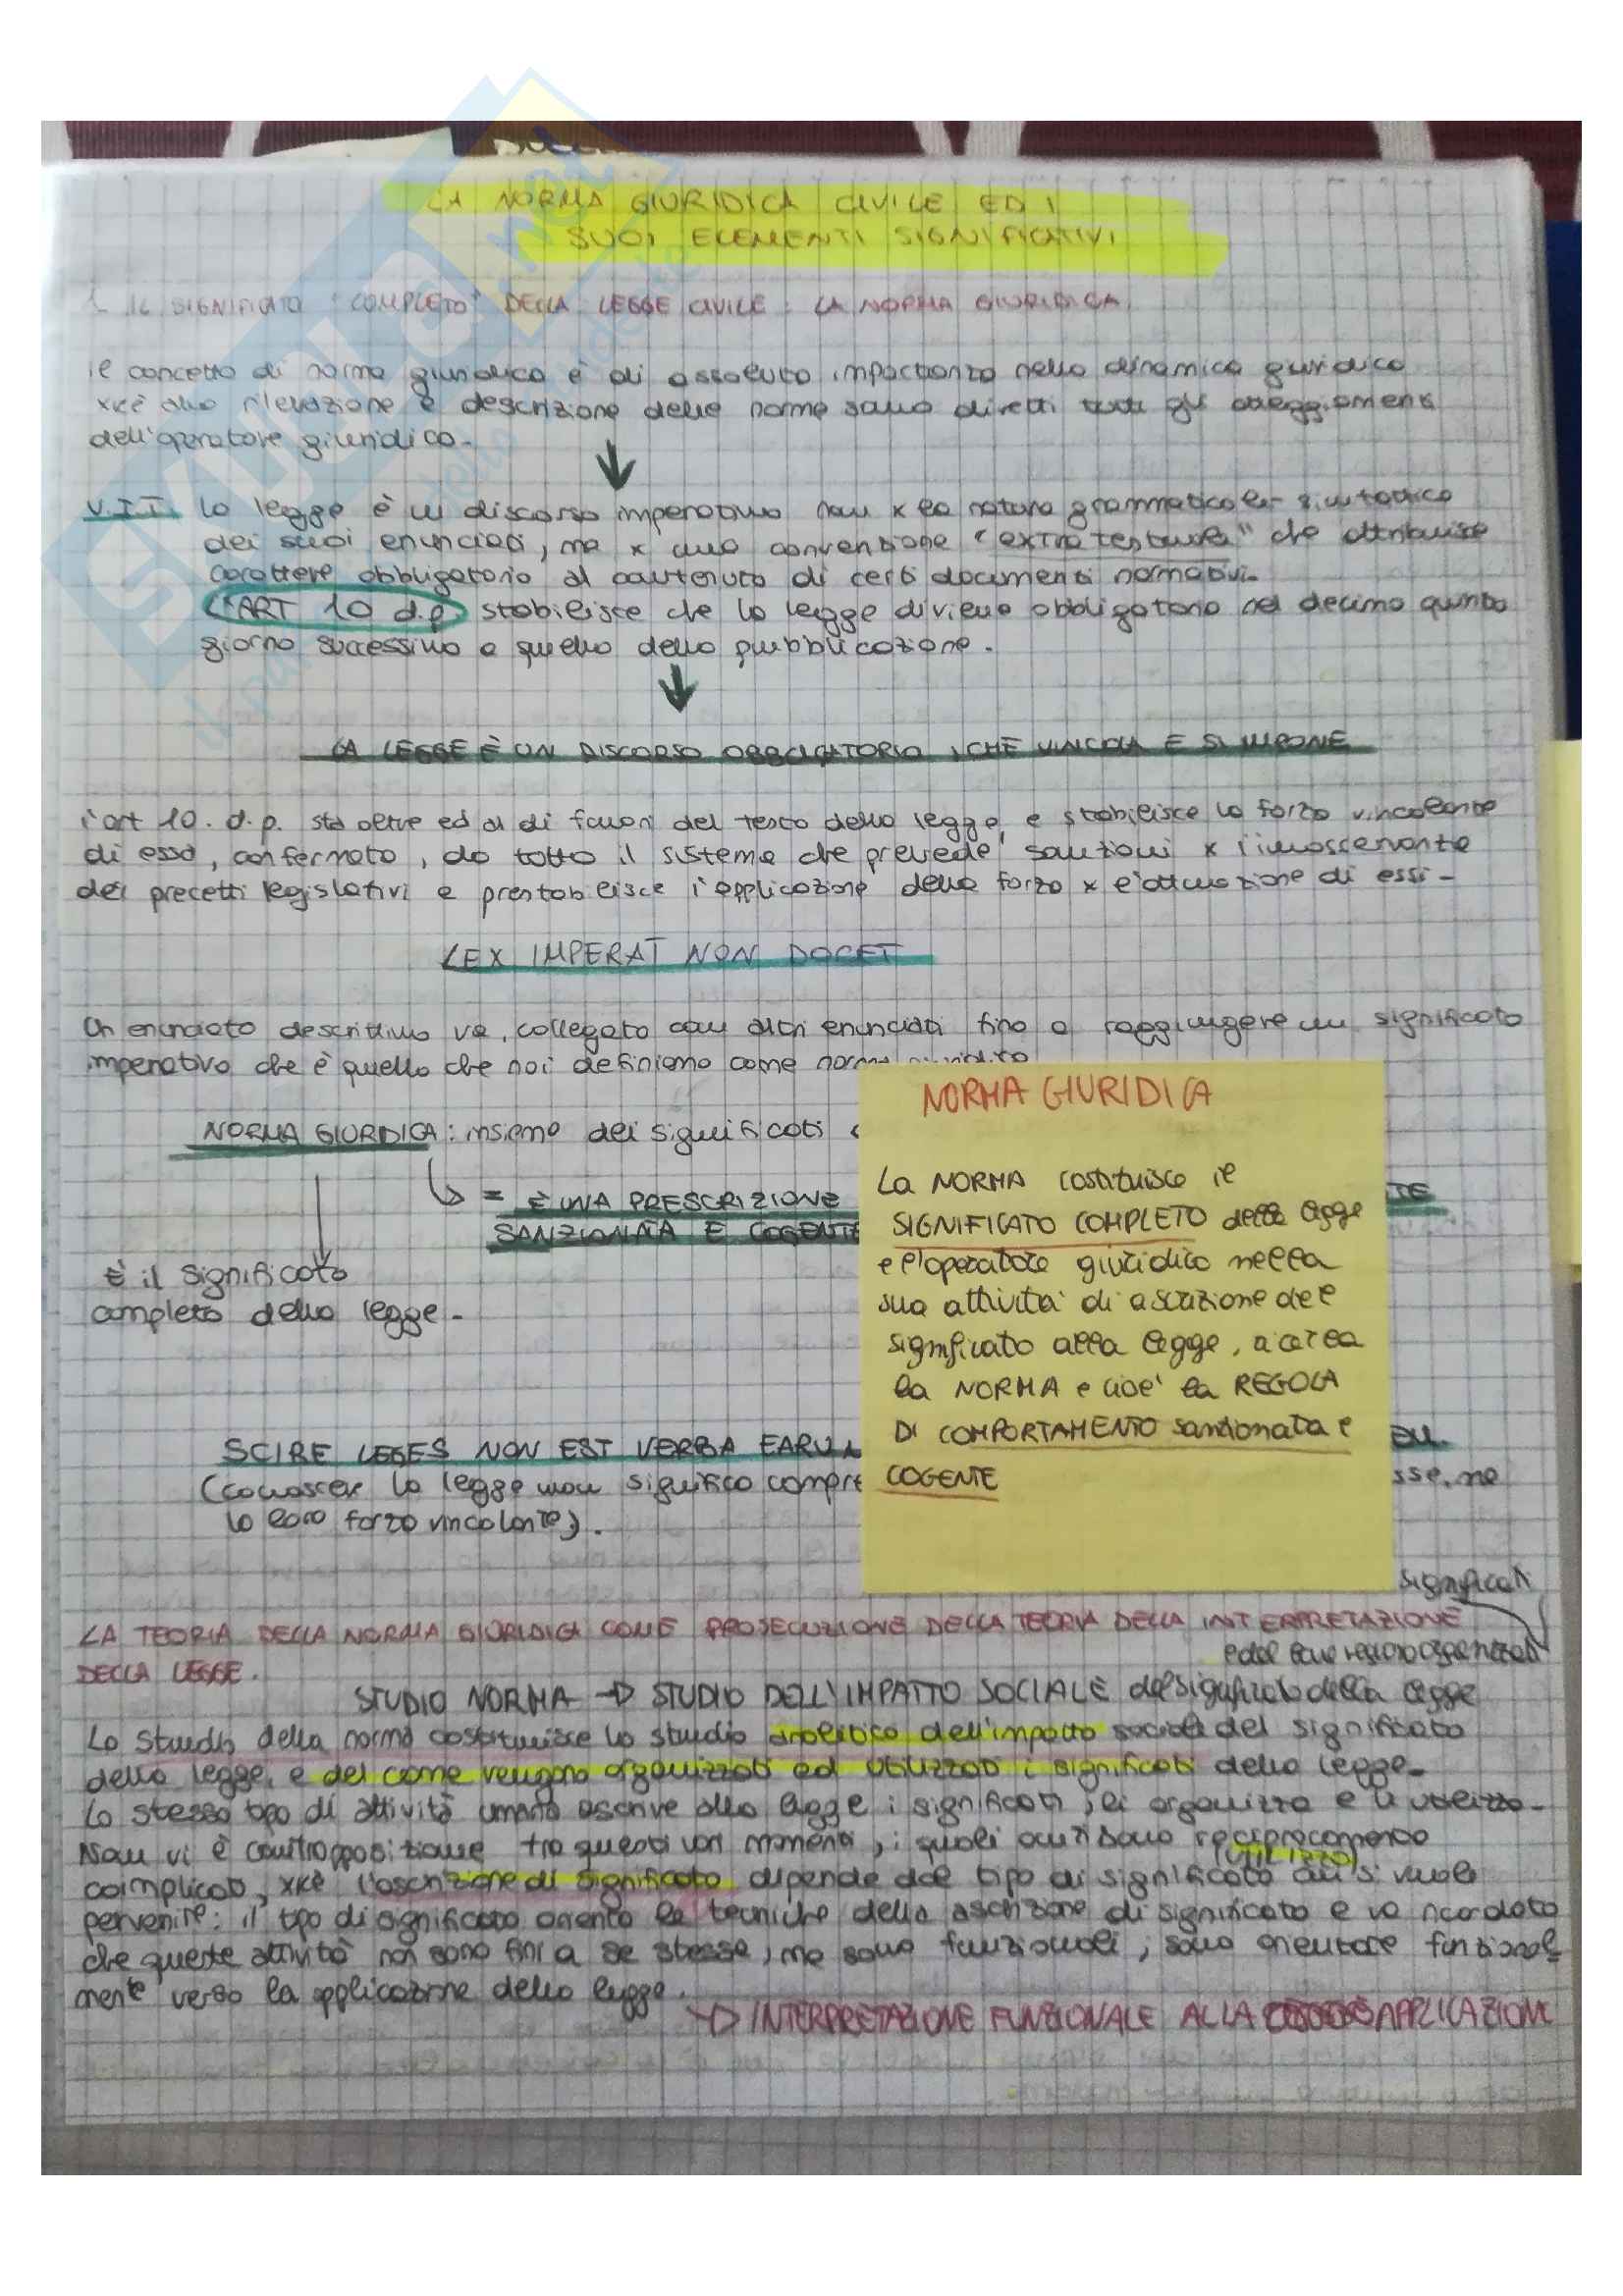 LA NORMA GIURIDICA CIVILE ED I
SUOI ELEMENTI SIGNIFICATIVI
1. IL SIGNIFICATO "COMPLETO" DELLA LEGGE CIVILE: LA NORMA GIURIDICA.
il concetto di norma giuridica è di assoluta importanza nella dinamica giuridica
xkè alla rilevazione e descrizione delle norme sono diretti tutti gli atteggiamenti
dell'operatore giuridico.
V.I.T. La legge è un discorso imperativo non x la natura grammaticale-sintattica
dei suoi enunciati, ma x una convenzione "extratestuale" che attribuisce
carattere obbligatorio al contenuto di certi documenti normativi.
L'ART 10 d.p stabilisce che la legge diviene obbligatoria nel decimo quinto
giorno successivo a quello della pubblicazione.
LA LEGGE È UN DISCORSO OBBLIGATORIO, CHE VINCOLA E SI IMPONE
l'art 10. d.p. sta oltre ed al di fuori del testo della legge, e stabilisce la forza vincolante
di essa, confermata, da tutto il sistema che prevede sanzioni x l'inosservanza
dei precetti legislativi e prestabilisce l'applicazione della forza x l'attuazione di essi-
LEX IMPERAT NON DOCET
Un enunciato descrittivo va, collegato con altri enunciati fino a raggiungere un significato
imperativo che è quello che noi definiamo come norma giuridica
NORMA GIURIDICA: insieme dei significati
= È UNA PRESCRIZIONE
SANZIONATA E COGENTE
È il significato
completo della legge.
NORMA GIURIDICA
La NORMA costituisce il
SIGNIFICATO COMPLETO della legge
e l'operatore giuridico nella
sua attività di ascrizione del
significato alla legge, ricerca
la NORMA e cioè la REGOLA
DI COMPORTAMENTO sanzionata e
COGENTE
SCIRE LEGES NON EST VERBA EARUM
(conoscere la legge non significa compre sse, ne
la loro forza vincolante).
significati
LA TEORIA DELLA NORMA GIURIDICA COME PROSECUZIONE DELLA TEORIA DELLA INTERPRETAZIONE
DELLA LEGGE.
e del come vengono organizzati
STUDIO NORMA → STUDIO DELL'IMPATTO SOCIALE del significato della legge
Lo studio della norma costituisce lo studio analitico dell'impatto sociale del significato
della legge, e del come vengono organizzati ed utilizzati i significati della legge.
Lo stesso tipo di attività umana ascrive alla legge i significati, li organizza e li utilizza.
Non vi è contrapposizione tra questi vari momenti, i quali anzi sono reciprocamente
(UTILIZZO)
coimplicati, xkè l'ascrizione di significato dipende dal tipo di significato cui si vuole
pervenire: il tipo di significato orienta le tecniche della ascrizione di significato e va ricordato
che queste attività non sono fini a se stesse, ma sono funzionali, sono orientate funzional-
mente verso la applicazione della legge.
→ INTERPRETAZIONE FUNZIONALE ALLA APPLICAZIONE